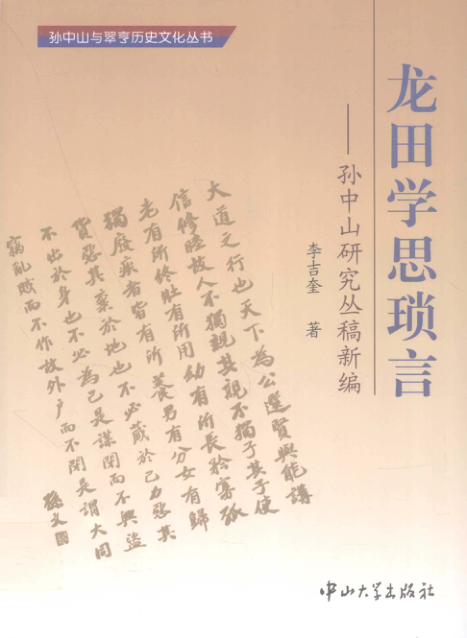 孙中山与翠亨历史文化丛书
龙田学思琐言
——孙中山研究丛稿新编
李吉奎 著
大道之行也天下為公選賢與能講
信修睦故人不獨親其親不獨子其子使
老有所終壯有所用幼有所長矜寡孤
獨廢疾者皆有所養男有分女有歸
貨惡其棄於地也不必藏於己力惡其
不出於身也不必為己是謀閉而不興盜
竊亂賊而不作故外户而不閉是謂大同
孫文
中山大学出版社